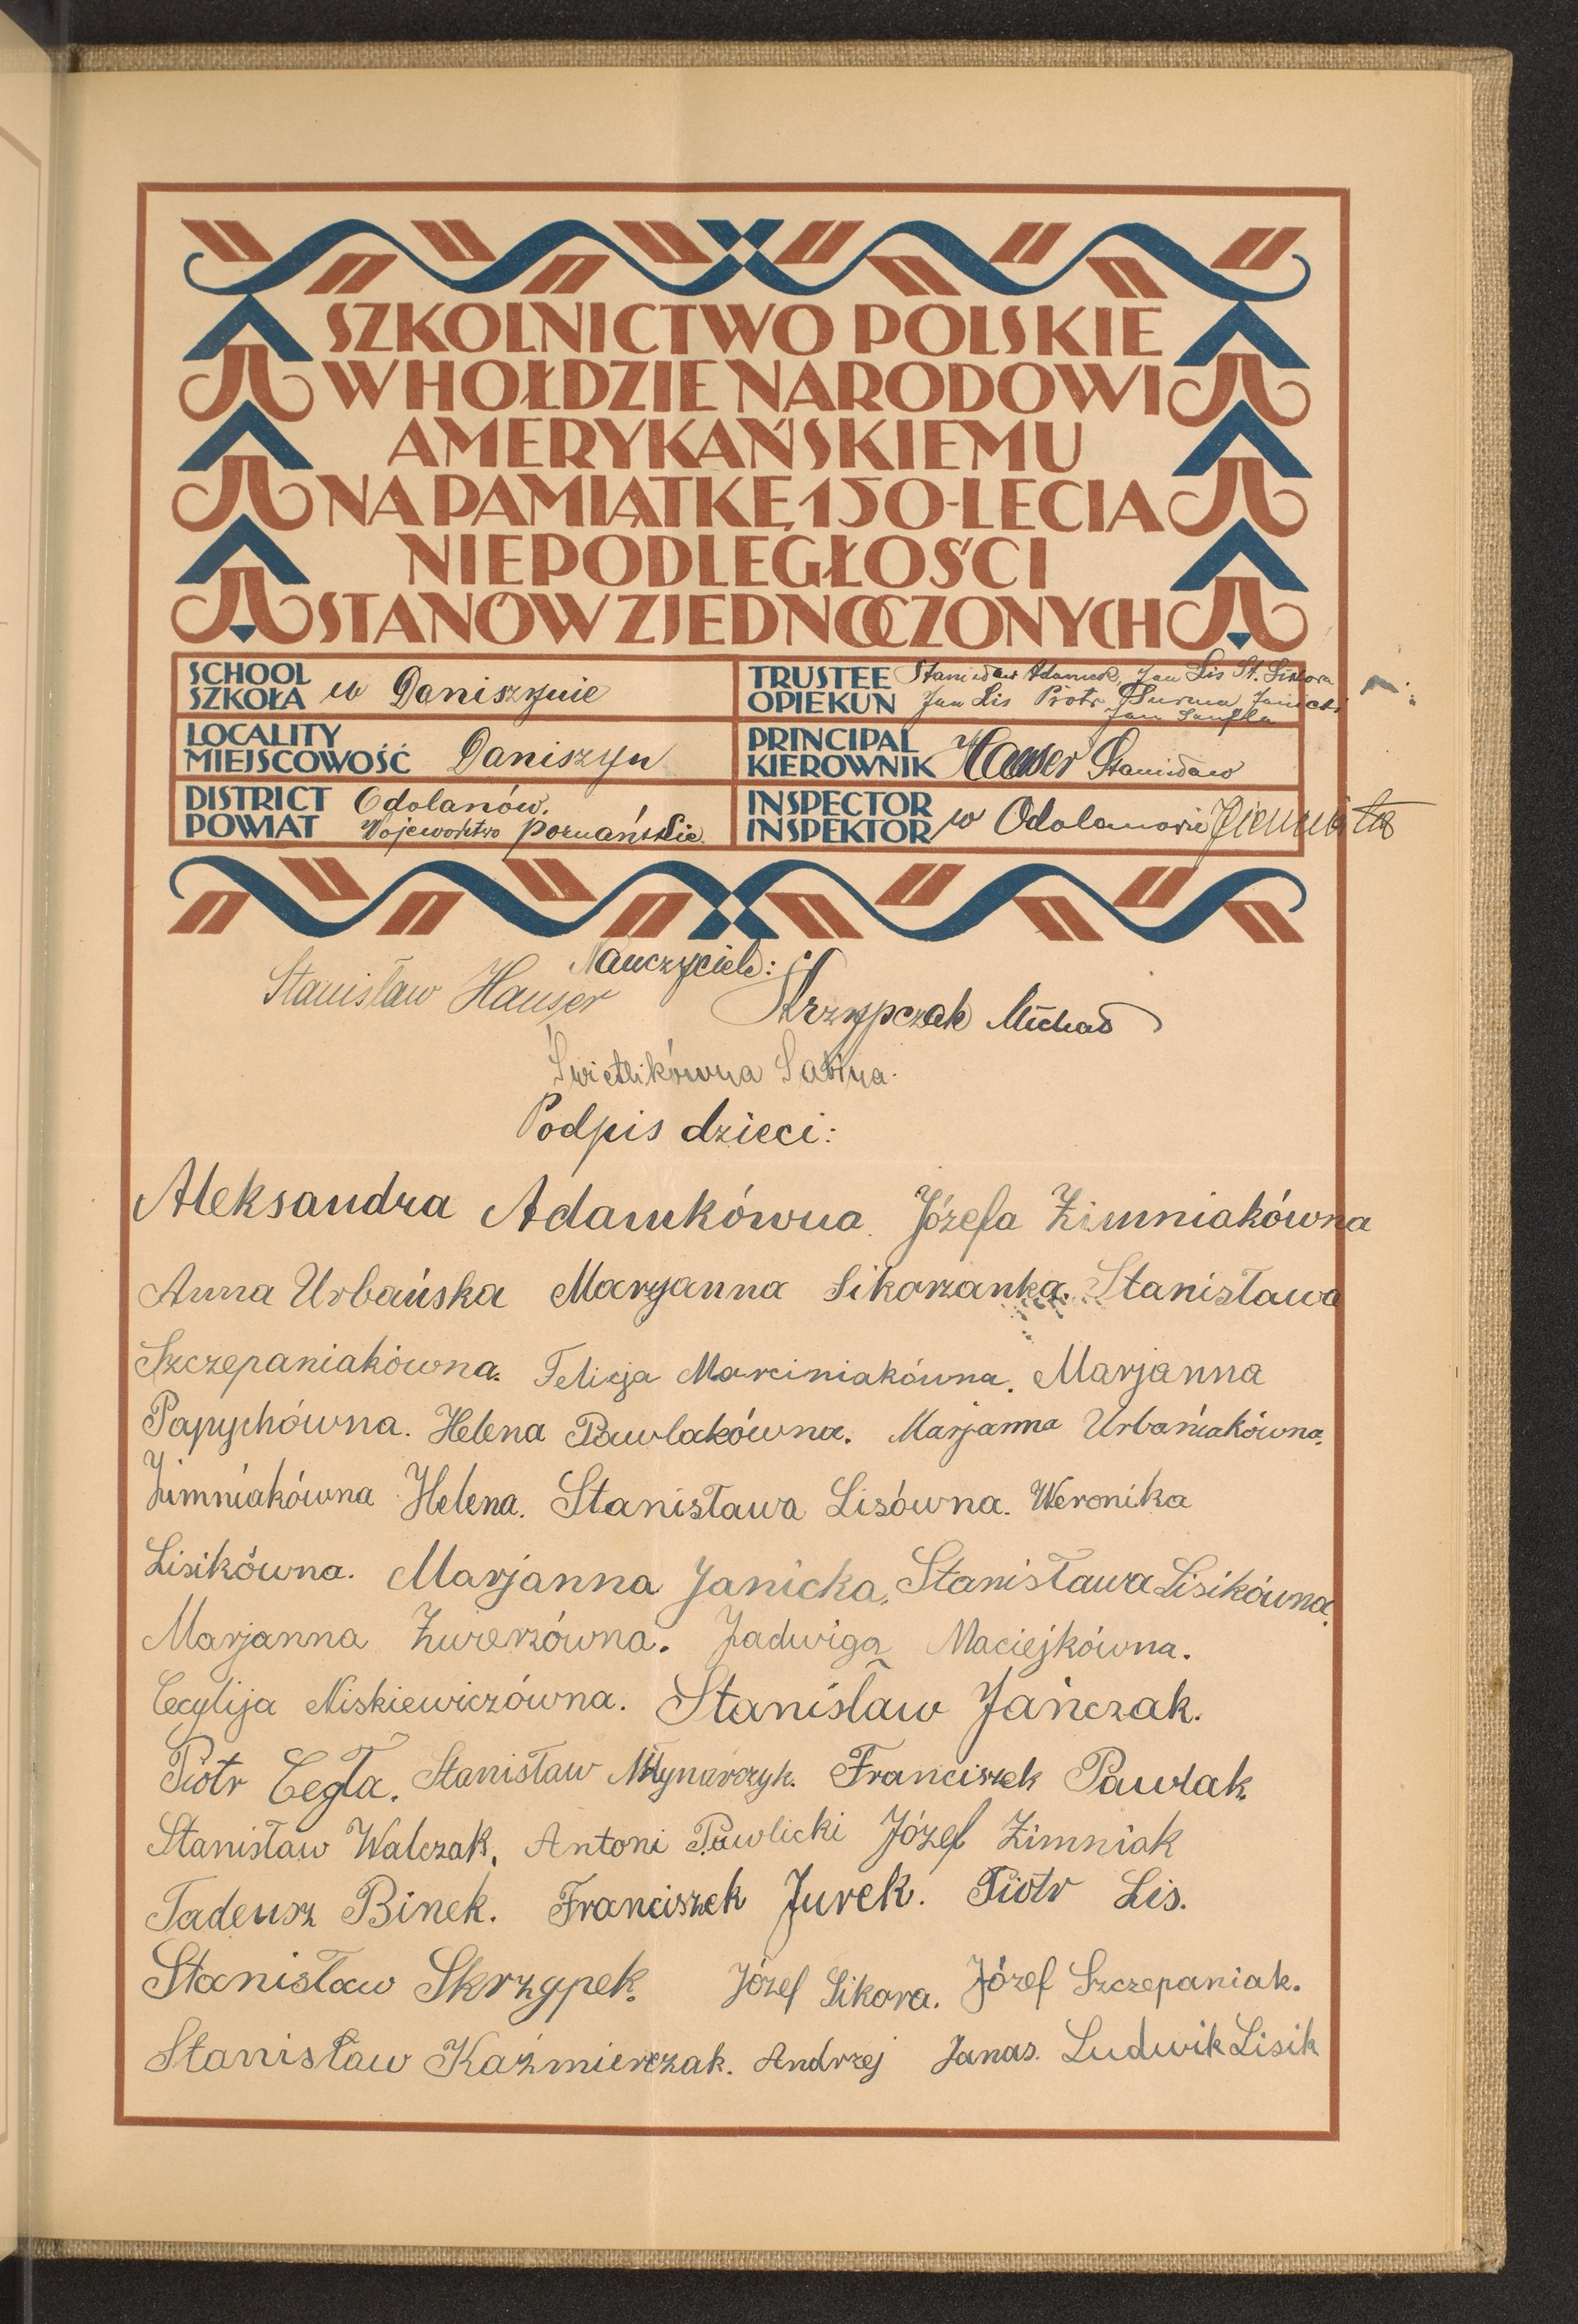 SZKOLNICTWO POLSKIE
W HOŁDZIE NARODOWI
AMERYKAŃSKIEMU
NA PAMIĄTKĘ 150-LECIA
NIEPODLEGŁOŚCI
STANÓW ZJEDNOCZONYCH
SCHOOL
SZKOŁA w Daniszynie
TRUSTEE Stanisław Adamek, Jan Lis St. Sikora
OPIEKUN Jan Lis Piotr Surma Janicki
Jan
LOCALITY
MIEJSCOWOŚĆ Daniszyn
PRINCIPAL
KIEROWNIK Hauser Stanisław
DISTRICT Odolanów.
POWIAT Województwo poznańskie.
INSPECTOR
INSPEKTOR w Odolanowie
Nauczyciele:
Stanisław Hauser Skrzypczak Michał
Świetlikówna Sabina.
Podpis dzieci:
Aleksandra Adamkówna. Józefa Zimniakówna
Anna Urbańska Maryanna Sikorzanka. Stanisława
Szczepaniakówna. Felicja Marciniakówna. Marjanna
Papychówna. Helena Pawlakówna. Marjanna Urbaniakówna.
Zimniakówna Helena. Stanisława Lisówna. Weronika
Lisikówna. Marjanna Janicka, Stanisława Lisikówna.
Marjanna Zwierzówna. Jadwiga Maciejkówna.
Cecylija Niskiewiczówna. Stanisław Jańczak.
Piotr Cegła. Stanisław Młynarczyk. Franciszek Pawlak.
Stanisław Walczak, Antoni Pawlicki Józef Zimniak
Tadeusz Binek. Franciszek Jurek. Piotr Lis.
Stanisław Skrzypek. Józef Sikora. Józef Szczepaniak.
Stanisław Kaźmierczak. Andrzej Janas. Ludwik Lisik